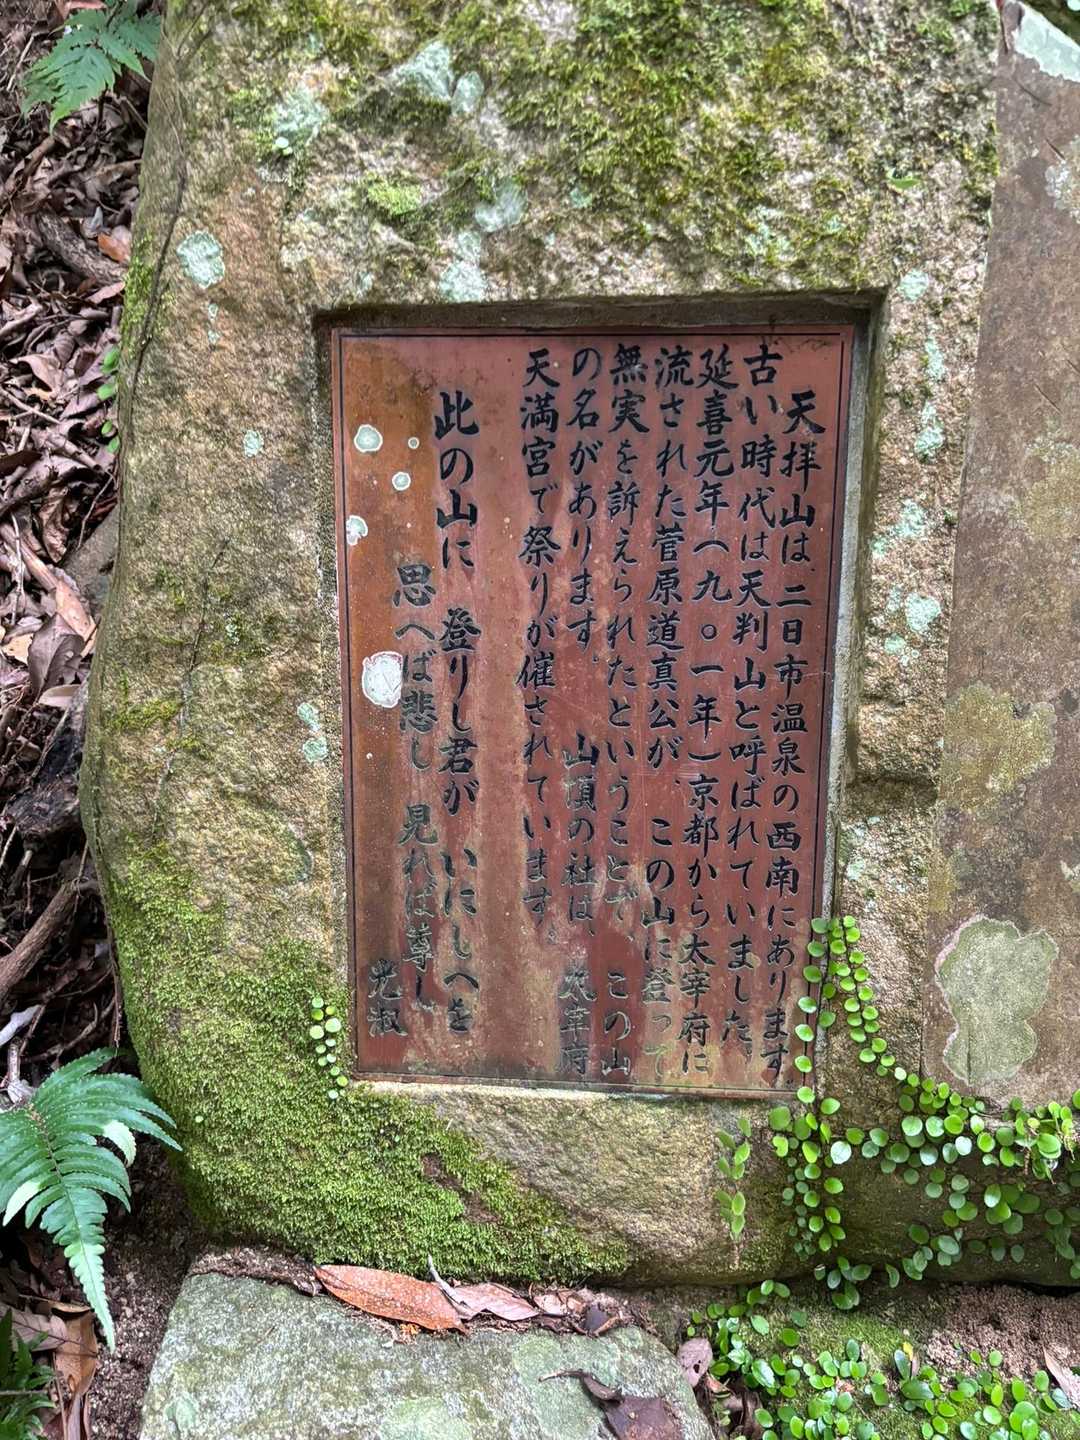 天拝山は、二日市温泉の西南にあります。
古い時代は天判山と呼ばれていました、
延喜元年(九〇一年)京都から太宰府に
流された菅原道真公が、この山に登って
無実を訴えられたということで、この山
の名があります。山頂の社は、太宰府
天満宮で祭りが催されています。
此の山に 登りし君が いにしへを
思へば悲し 見れば尊し
光淑